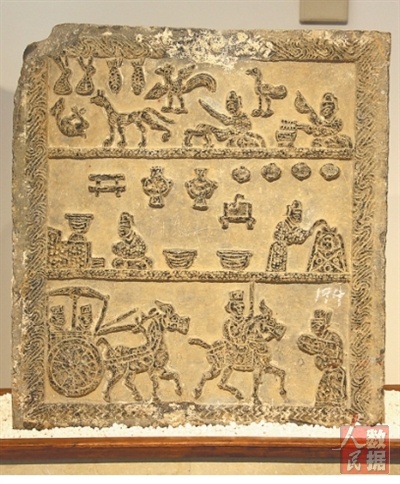 194
人民数据